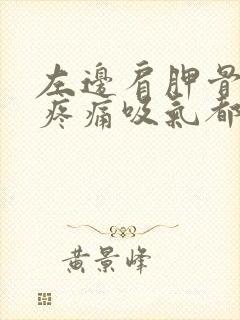 左邊肩胛骨
疼痛吸氣都
黃景峰